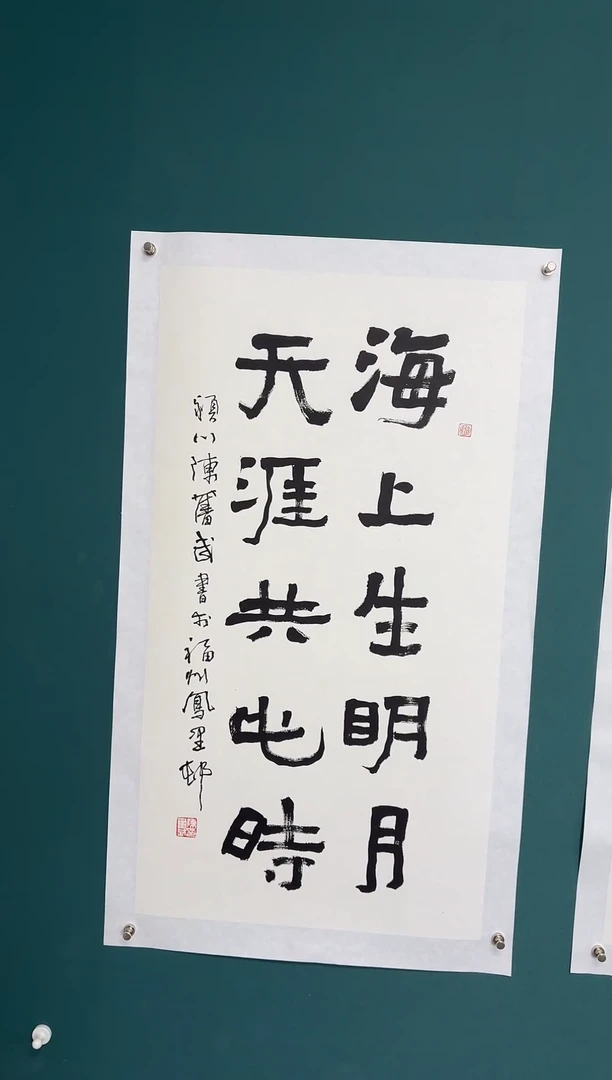 海上生明月
天涯共此時
潁川陳奮武書於福州鳳邨